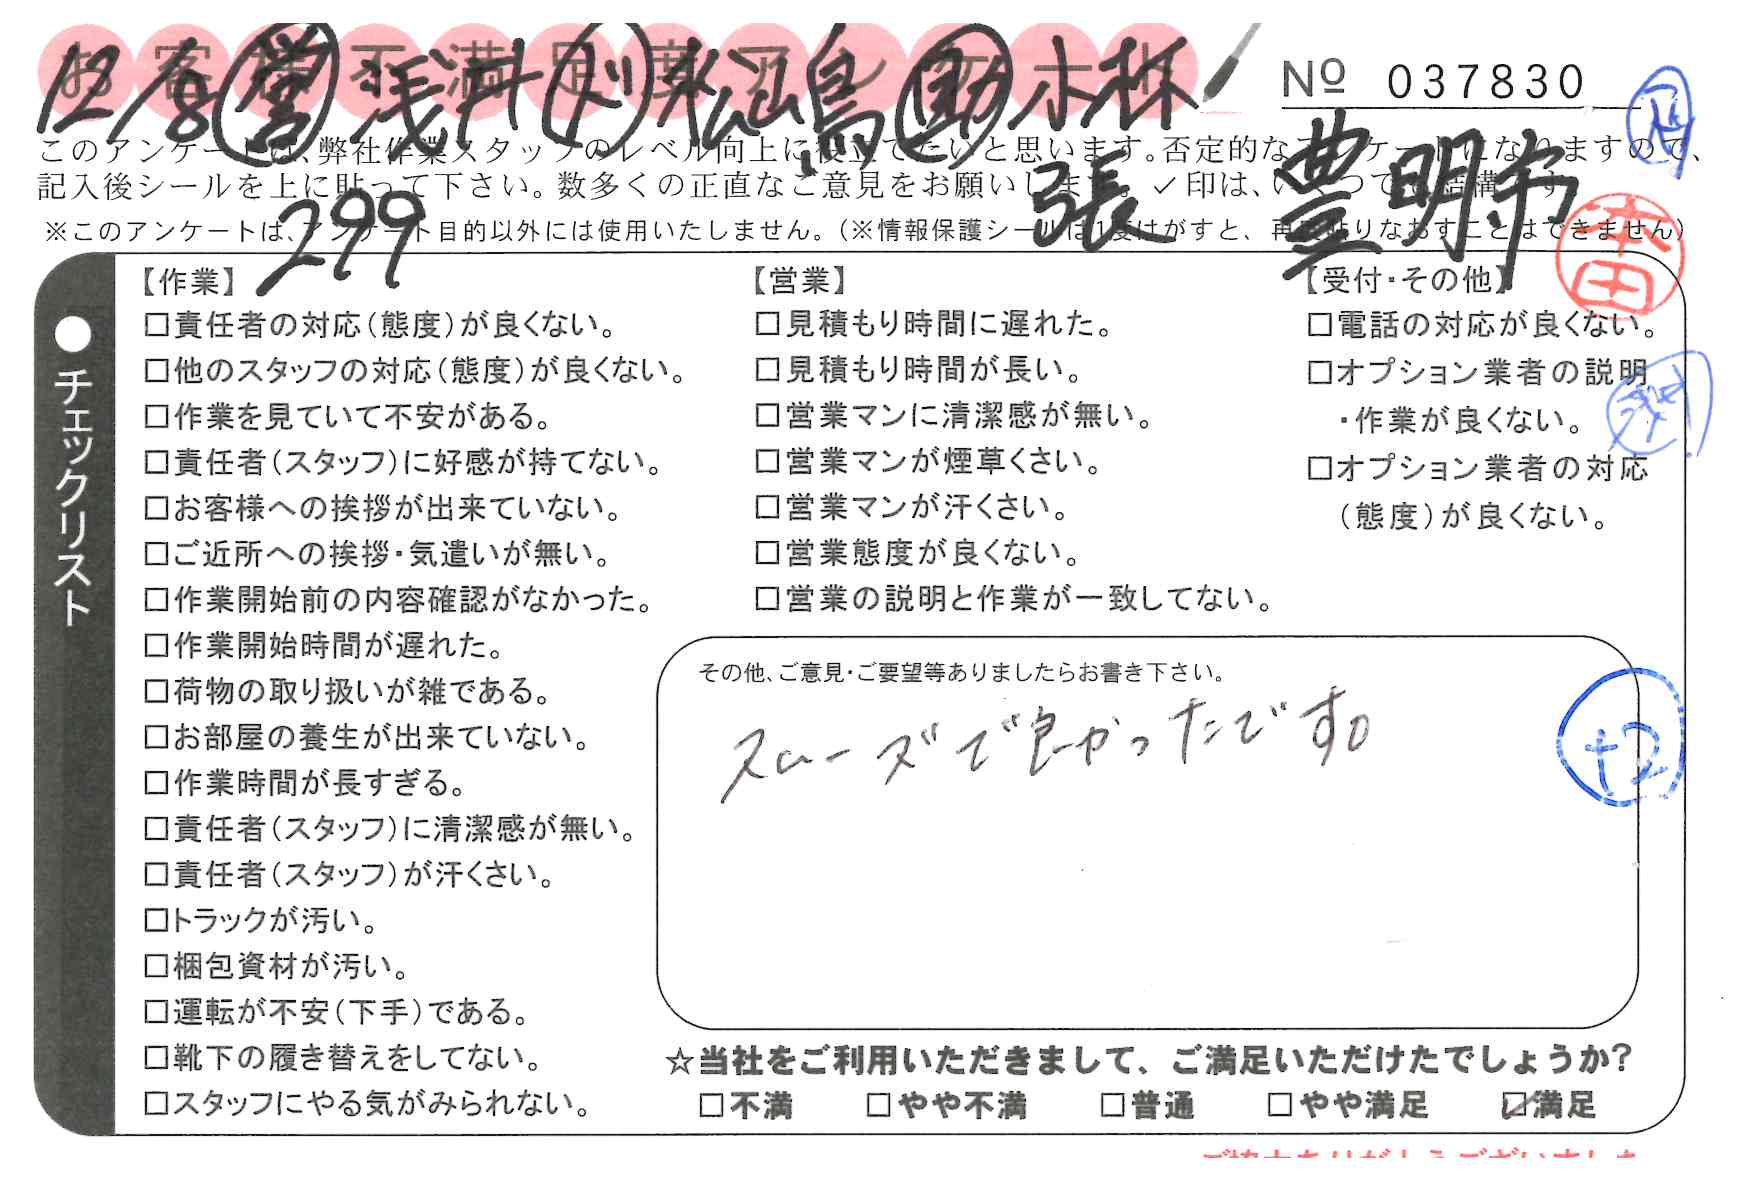 お客様不満足度アンケート
12/8 営 浅井 ド 松嶋 助 小林
張 豊明市
299
№ 037830
このアンケートは、弊社作業スタッフのレベル向上に役立てたいと思います。否定的なアンケートになりますので、
記入後シールを上に貼って下さい。数多くの正直なご意見をお願いします。✓印は、いくつでも結構です
※このアンケートは、アンケート目的以外には使用いたしません。(※情報保護シールは1度はがすと、再度貼りなおすことはできません)
本田
●チェックリスト
【作業】
□責任者の対応(態度)が良くない。
□他のスタッフの対応(態度)が良くない。
□作業を見ていて不安がある。
□責任者(スタッフ)に好感が持てない。
□お客様への挨拶が出来ていない。
□ご近所への挨拶・気遣いが無い。
□作業開始前の内容確認がなかった。
□作業開始時間が遅れた。
□荷物の取り扱いが雑である。
□お部屋の養生が出来ていない。
□作業時間が長すぎる。
□責任者(スタッフ)に清潔感が無い。
□責任者(スタッフ)が汗くさい。
□トラックが汚い。
□梱包資材が汚い。
□運転が不安(下手)である。
□靴下の履き替えをしてない。
□スタッフにやる気がみられない。
【営業】
□見積もり時間に遅れた。
□見積もり時間が長い。
□営業マンに清潔感が無い。
□営業マンが煙草くさい。
□営業マンが汗くさい。
□営業態度が良くない。
□営業の説明と作業が一致してない。
【受付・その他】
□電話の対応が良くない。
□オプション業者の説明
・作業が良くない。
□オプション業者の対応
(態度)が良くない。
浅井
その他、ご意見・ご要望等ありましたらお書き下さい。
スムーズで良かったです。
+2
☆当社をご利用いただきまして、ご満足いただけたでしょうか?
□不満 □やや不満 □普通 □やや満足 ☑満足
ご協力ありがとうございました